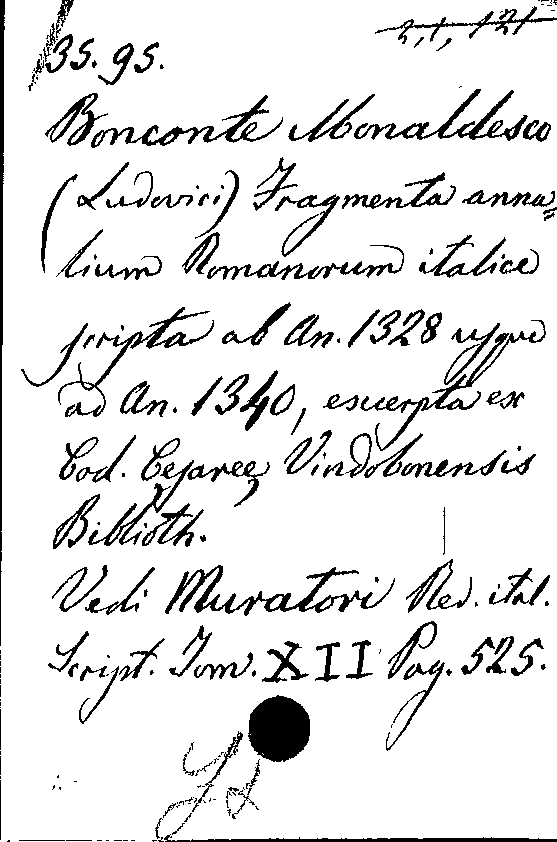 2,1,121
35.95.
Bonconte Monaldesco
(Ludovici) Fragmenta anna=
lium Romanorum italice
scripta ab An. 1328 usque
ad An. 1340, excerpta ex
Cod. Cesareę Vindobonensis
Biblioth.
Vedi Muratori Rer. ital.
Script. Tom. XII Pag. 525.